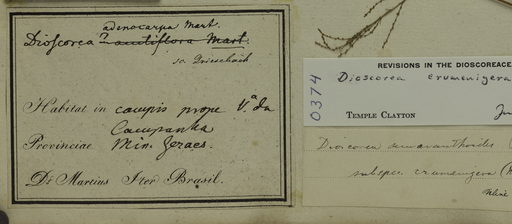 adenocarpa Mart.
Dioscorea multiflora Mart.
sec. Grisebach
Habitat in campis prope V.ª da
Campanha
Provinciae Min. Geraes.
Dr Martius Iter Brasil.
REVISIONS IN THE DIOSCOREACE
0374
Dioscorea crumenigera
TEMPLE CLAYTON
Dioscorea amaranthoides
subspec. crumenigera
Uline